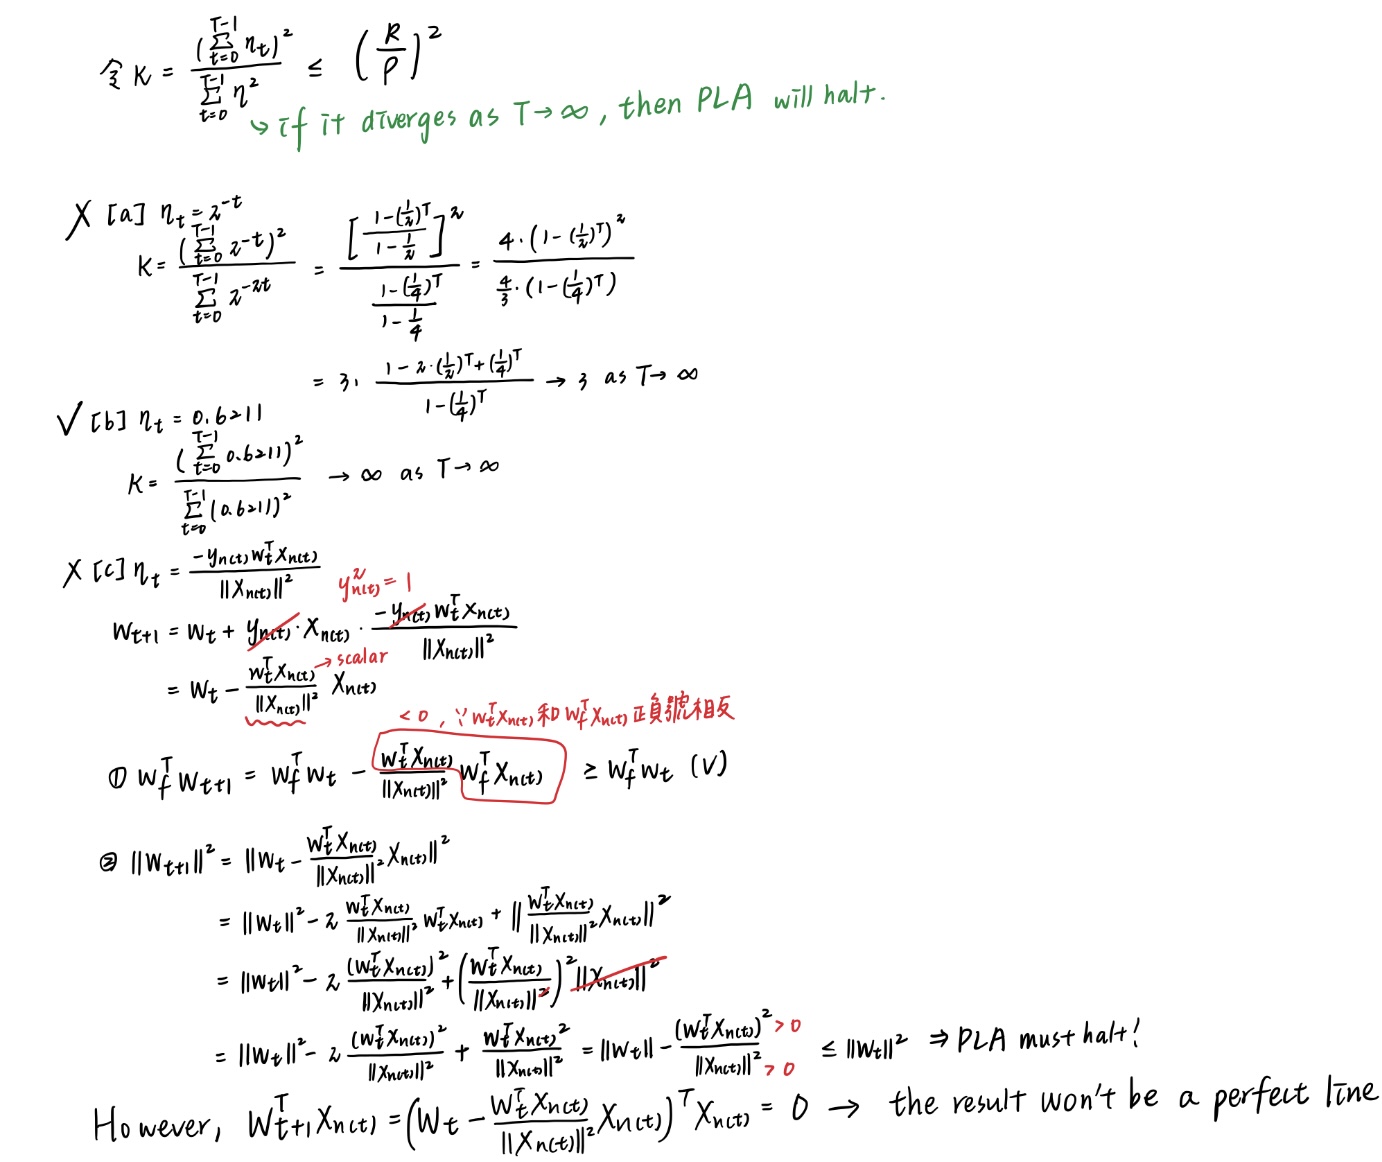 令 K = \frac{(\sum_{t=0}^{T-1} η_t)^2}{\sum_{t=0}^{T-1} η^2} ≤ (\frac{R}{ρ})^2
↳ if it diverges as T→∞, then PLA will halt.
X [a] η_t = 2^{-t}
K = \frac{(\sum_{t=0}^{T-1} 2^{-t})^2}{\sum_{t=0}^{T-1} 2^{-2t}} = \frac{[\frac{1-(\frac{1}{2})^T}{1-\frac{1}{2}}]^2}{\frac{1-(\frac{1}{4})^T}{1-\frac{1}{4}}} = \frac{4·(1-(\frac{1}{2})^T)^2}{\frac{4}{3}·(1-(\frac{1}{4})^T)}
= 3· \frac{1-2·(\frac{1}{2})^T+(\frac{1}{4})^T}{1-(\frac{1}{4})^T} → 3 as T→∞
✓ [b] η_t = 0.6211
K = \frac{(\sum_{t=0}^{T-1} 0.6211)^2}{\sum_{t=0}^{T-1} (0.6211)^2} → ∞ as T→∞
X [c] η_t = \frac{-y_{n(t)} w_t^T x_{n(t)}}{||x_{n(t)}||^2}
y_{n(t)}^2 = 1
w_{t+1} = w_t + y_{n(t)} · x_{n(t)} · \frac{-y_{n(t)} w_t^T x_{n(t)}}{||x_{n(t)}||^2}
= w_t - \frac{w_t^T x_{n(t)}}{||x_{n(t)}||^2} x_{n(t)} → scalar
<0, ∵ w_t^T x_{n(t)} 和 w_f^T x_{n(t)} 正負號相反
① w_f^T w_{t+1} = w_f^T w_t - \frac{w_t^T x_{n(t)}}{||x_{n(t)}||^2} w_f^T x_{n(t)} ≥ w_f^T w_t (V)
② ||w_{t+1}||^2 = ||w_t - \frac{w_t^T x_{n(t)}}{||x_{n(t)}||^2} x_{n(t)}||^2
= ||w_t||^2 - 2 \frac{w_t^T x_{n(t)}}{||x_{n(t)}||^2} w_t^T x_{n(t)} + ||\frac{w_t^T x_{n(t)}}{||x_{n(t)}||^2} x_{n(t)}||^2
= ||w_t||^2 - 2 \frac{(w_t^T x_{n(t)})^2}{||x_{n(t)}||^2} + (\frac{w_t^T x_{n(t)}}{||x_{n(t)}||^2})^2 ||x_{n(t)}||^2
= ||w_t||^2 - 2 \frac{(w_t^T x_{n(t)})^2}{||x_{n(t)}||^2} + \frac{w_t^T x_{n(t)}^2}{||x_{n(t)}||^2} = ||w_t|| - \frac{(w_t^T x_{n(t)})^2 >0}{||x_{n(t)}||^2 >0} ≤ ||w_t||^2 ⇒ PLA must halt!
However, w_{t+1}^T x_{n(t)} = (w_t - \frac{w_t^T x_{n(t)}}{||x_{n(t)}||^2} x_{n(t)})^T x_{n(t)} = 0 → the result won't be a perfect line